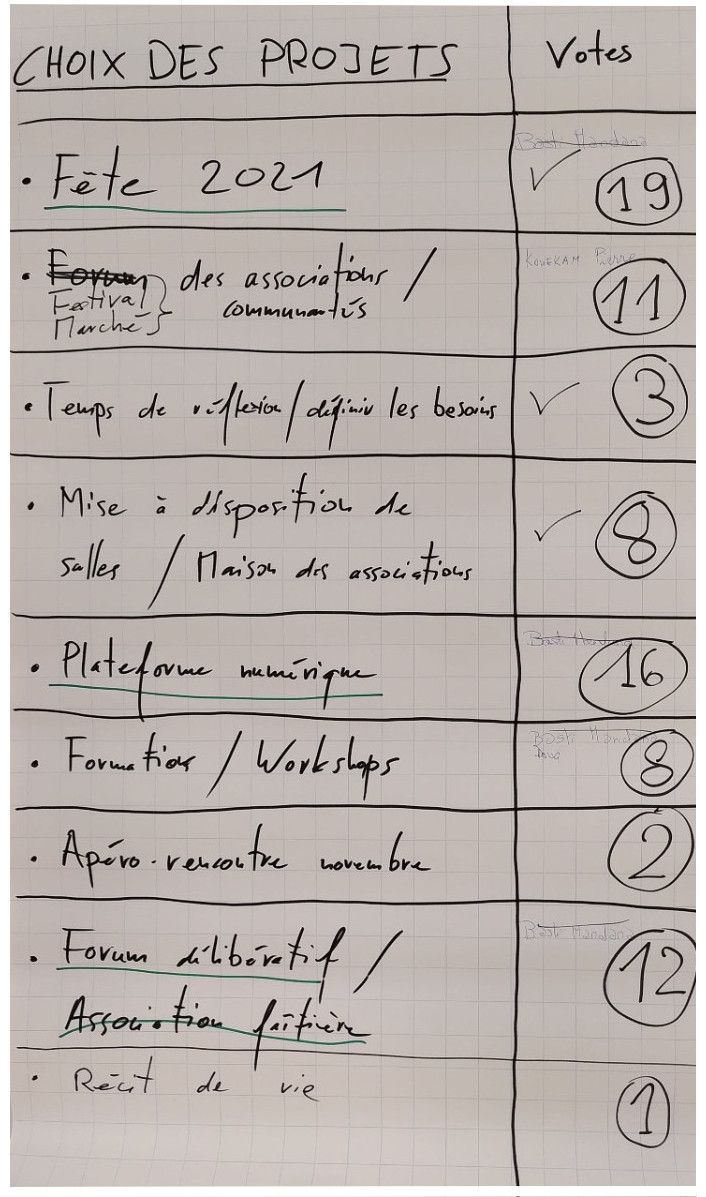 CHOIX DES PROJETS
Votes
• Fête 2021
Basti Mandana
✓ 19
• Forum des associations /
Festival communautés
Marché
KOWEKAM Pierre
11
• Temps de réflexion / définir les besoins
✓ 3
• Mise à disposition de
salles / Maison des associations
✓ 8
• Plateforme numérique
Basti Mandana
16
• Formation / Workshops
Basti Mandana
8
• Apéro-rencontre novembre
2
• Forum délibératif /
Association faîtière
Basti Mandana
12
• Récit de vie
1